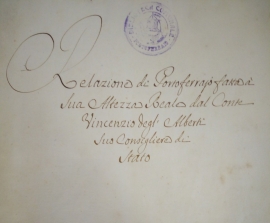 Relazione di Portoferrajo fatta a
Sua Altezza Reale dal Conte
Vincenzio degl' Alberti
Suo Consigliere di
Stato